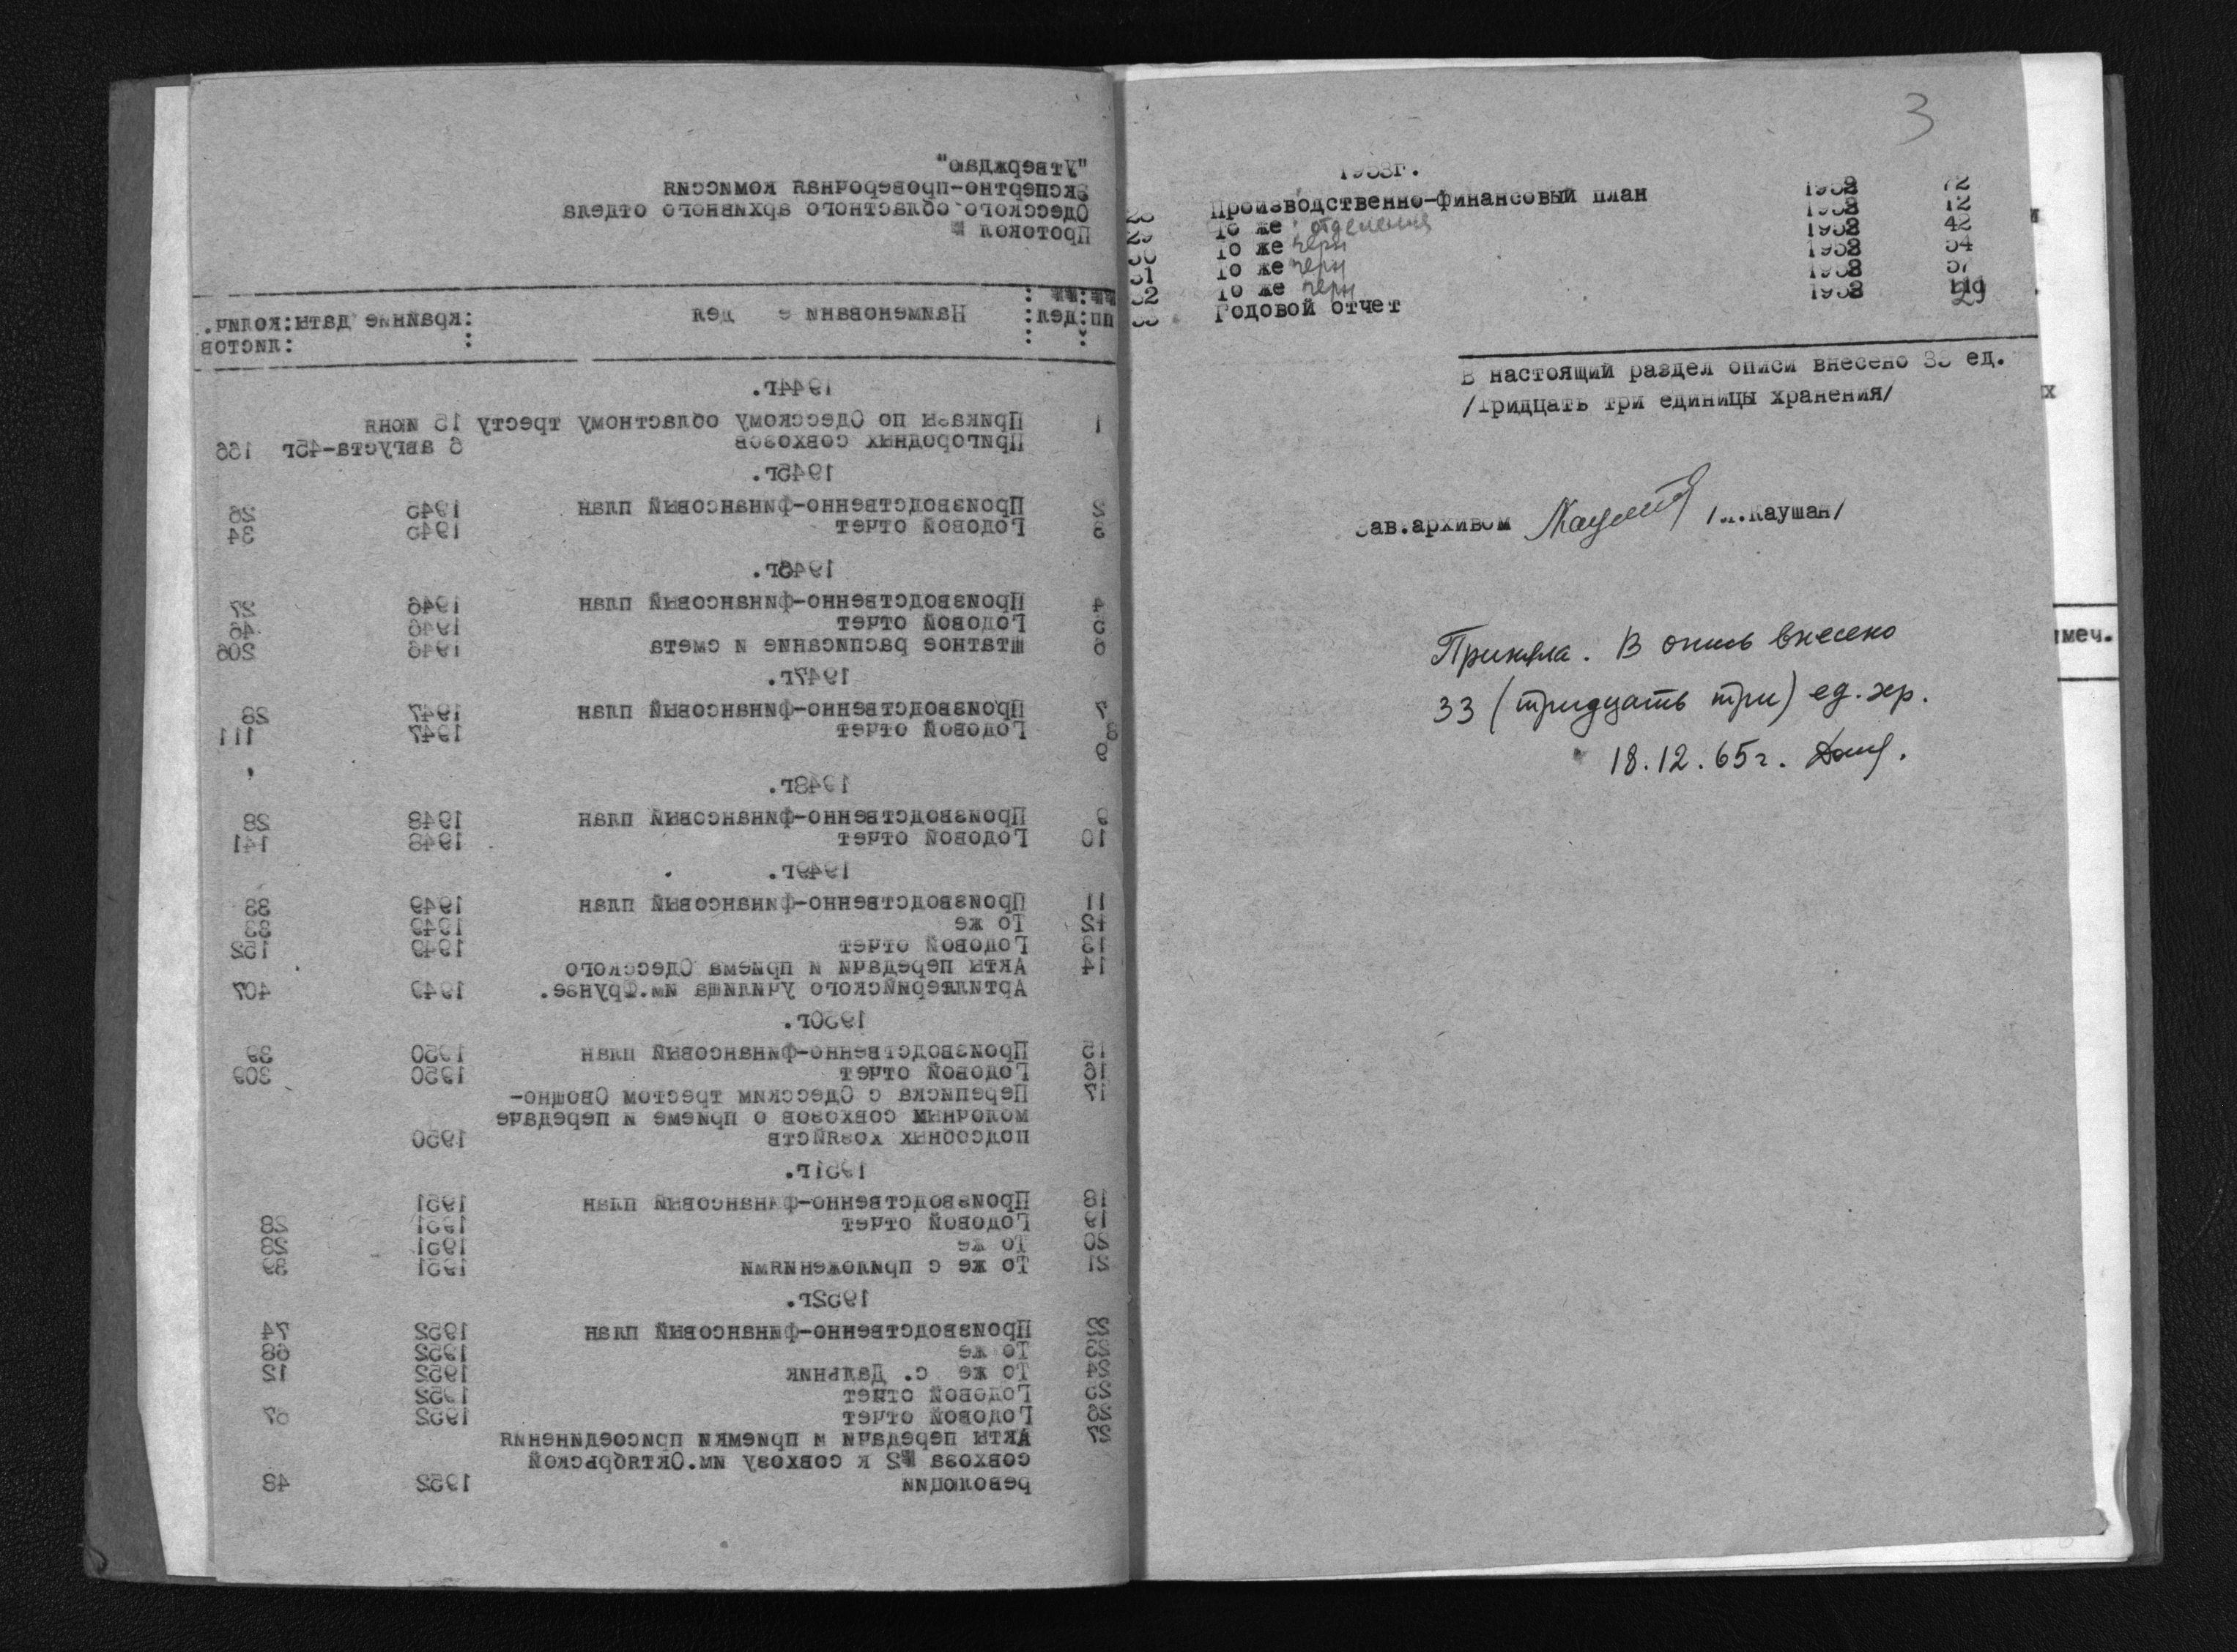 "Утверждаю"
Экспертно-проверочная комиссия
Одесского областного архивного отдела
Протокол №
№№:№№ :
пп:дел: Наименование дел :крайние даты:колич.
: листов
1944г.
1 Приказы по Одесскому областному тресту 15 июня
Пригородных совхозов 6 августа-45г 166
1945г.
2 Производственно-финансовый план 1945 26
3 Годовой отчет 1945 34
1946г.
4 Производственно-финансовый план 1946 27
5 Годовой отчет 1946 46
6 Штатное расписание и смета 1946 206
1947г.
7 Производственно-финансовый план 1947 28
8 Годовой отчет 1947 111
9
1948г.
9 Производственно-финансовый план 1948 28
10 Годовой отчет 1948 141
1949г.
11 Производственно-финансовый план 1949 33
12 То же 1949 33
13 Годовой отчет 1949 152
14 Акты передачи и приема Одесского
Артиллерийского училища им.Фрунзе. 1949 407
1950г.
15 Производственно-финансовый план 1950 39
16 Годовой отчет 1950 309
17 Переписка с Одесским трестом Овощно-
молочным совхозов о приеме и передаче
подсобных хозяйств 1950
1951г.
18 Производственно-финансовый план 1951
19 Годовой отчет 1951 28
20 То же 1951 28
21 То же с приложениями 1951 39
1952г.
22 Производственно-финансовый план 1952 74
23 То же 1952 68
24 То же с. Дальник 1952 12
25 Годовой отчет 1952
26 Годовой отчет 1952 67
27 Акты передачи и приемки присоединения
совхоза №2 к совхозу им.Октябрьской
революции 1952 48
3
1953г.
28 Производственно-финансовый план 1953 72
29 То же отделения 1953 12
30 То же черн 1953 42
31 То же черн 1953 54
32 То же черн 1953 57
33 Годовой отчет 1953 29
В настоящий раздел описи внесено 33 ед.
/тридцать три единицы хранения/
Зав.архивом /Каушан/
Приняла. В опись внесено
33 (тридцать три) ед. хр.
18.12.65г.
меч.